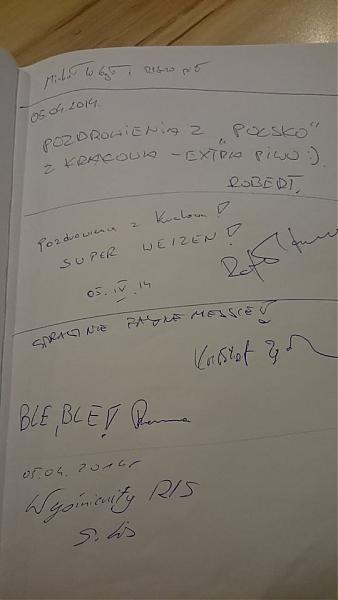 05.04.2014.
POZDROWIENIA Z „POLSKO"
Z KRAKOWA - EXTRA PIWO :)
ROBERT.
Pozdrowienia z Krakowa!
SUPER WEIZEN!
05.IV.14
FAJNE MIEJSCE!
Krzysztof
BLE, BLE!
05.04.2014r
Wyśmienity RIS
S. Lis